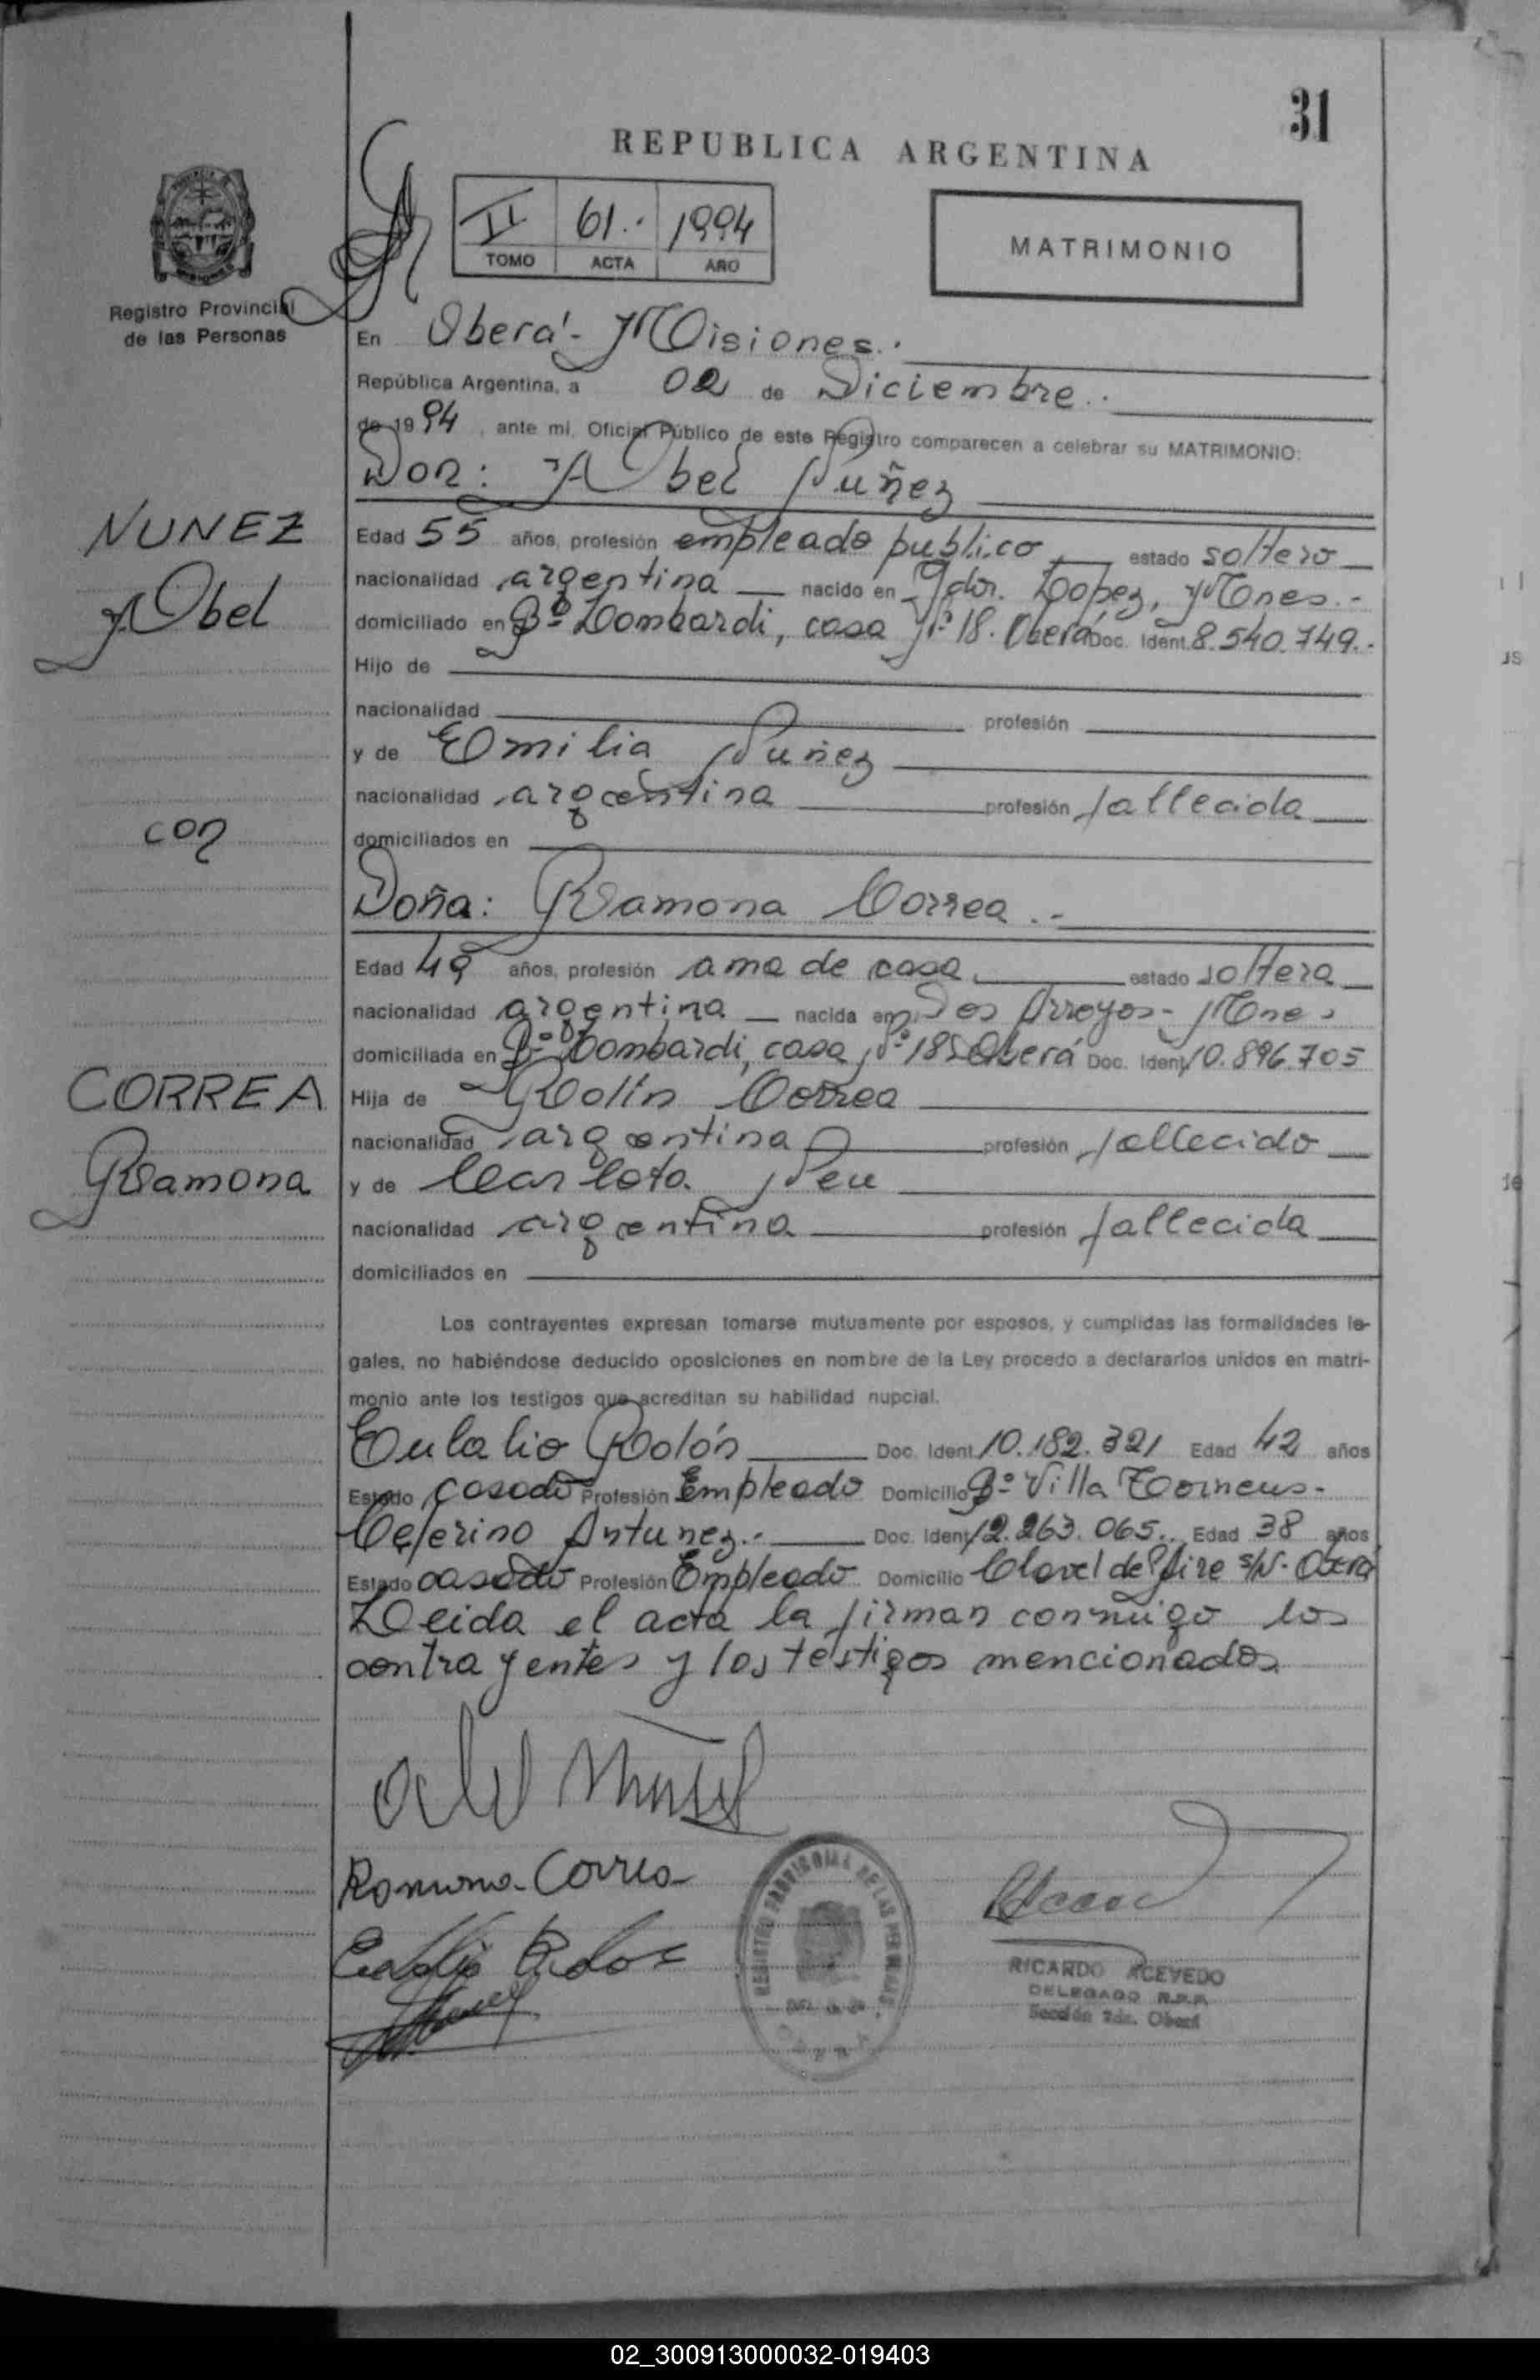 31
REPUBLICA ARGENTINA
II 61.- 1994
TOMO ACTA AÑO
MATRIMONIO
Registro Provincial
de las Personas
En Oberá - Misiones.-
República Argentina, a 02 de Diciembre.-
de 1994, ante mi, Oficial Público de este Registro comparecen a celebrar su MATRIMONIO:
Don: Abel Nuñez
NUNEZ
Abel
Edad 55 años, profesión empleado publico estado soltero
nacionalidad argentina nacido en Gdor. Lopez, Mnes.-
domiciliado en Bº Lombardi, casa Nº 18. Oberá Doc. Ident. 8.540.749.-
Hijo de
nacionalidad profesión
y de Emilia Nuñez
nacionalidad argentina profesión fallecida
con
domiciliados en
Doña: Ramona Correa.-
Edad 49 años, profesión ama de casa estado soltera
nacionalidad argentina nacida en Dos Arroyos - Mnes
domiciliada en Bº Lombardi, casa Nº 18 Oberá Doc. Ident. 10.896.705
CORREA
Ramona
Hija de Rolin Correa
nacionalidad argentina profesión fallecido
y de Carlota Neu
nacionalidad argentina profesión fallecida
domiciliados en
Los contrayentes expresan tomarse mutuamente por esposos, y cumplidas las formalidades le-
gales, no habiéndose deducido oposiciones en nombre de la Ley procedo a declararlos unidos en matri-
monio ante los testigos que acreditan su habilidad nupcial.
Eulalio Rolón Doc. Ident. 10.182.321 Edad 42 años
Estado casado Profesión Empleado Domicilio Bº Villa
Ceferino Antunez.- Doc. Ident. 12.263.065. Edad 38 años
Estado casado Profesión Empleado Domicilio Clavel del Aire s/N - Oberá
Leida el acta la firman conmigo los
contrayentes y los testigos mencionados
Ramona Correa
REGISTRO PROVINCIAL DE LAS PERSONAS
OBERA
RICARDO ACEVEDO
DELEGADO R.P.P.
Sección 2da. Oberá
02_300913000032-019403